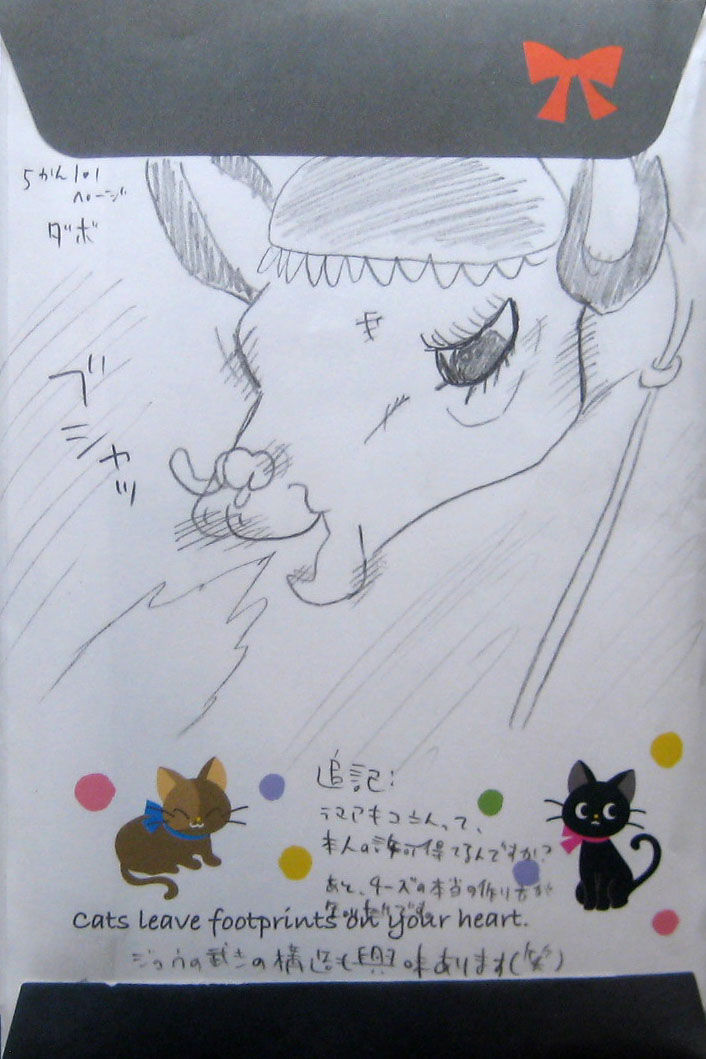 5かん101
ページ
ダボ
ブシャッ
追記:
テマアキコさんって、
本人の許可得てるんですか?
あと、チーズの本当の作り方が
です。
Cats leave footprints on your heart.
ジョウの武きの構造も興味あります(笑)